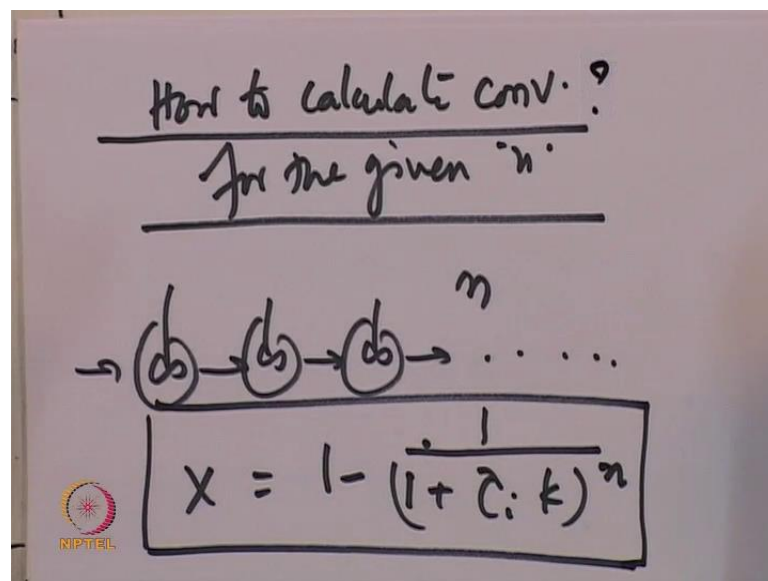 How to calculate conv. ?
for the given "n"
n
X = 1 - 1 / (1 + τi k)^n
NPTEL